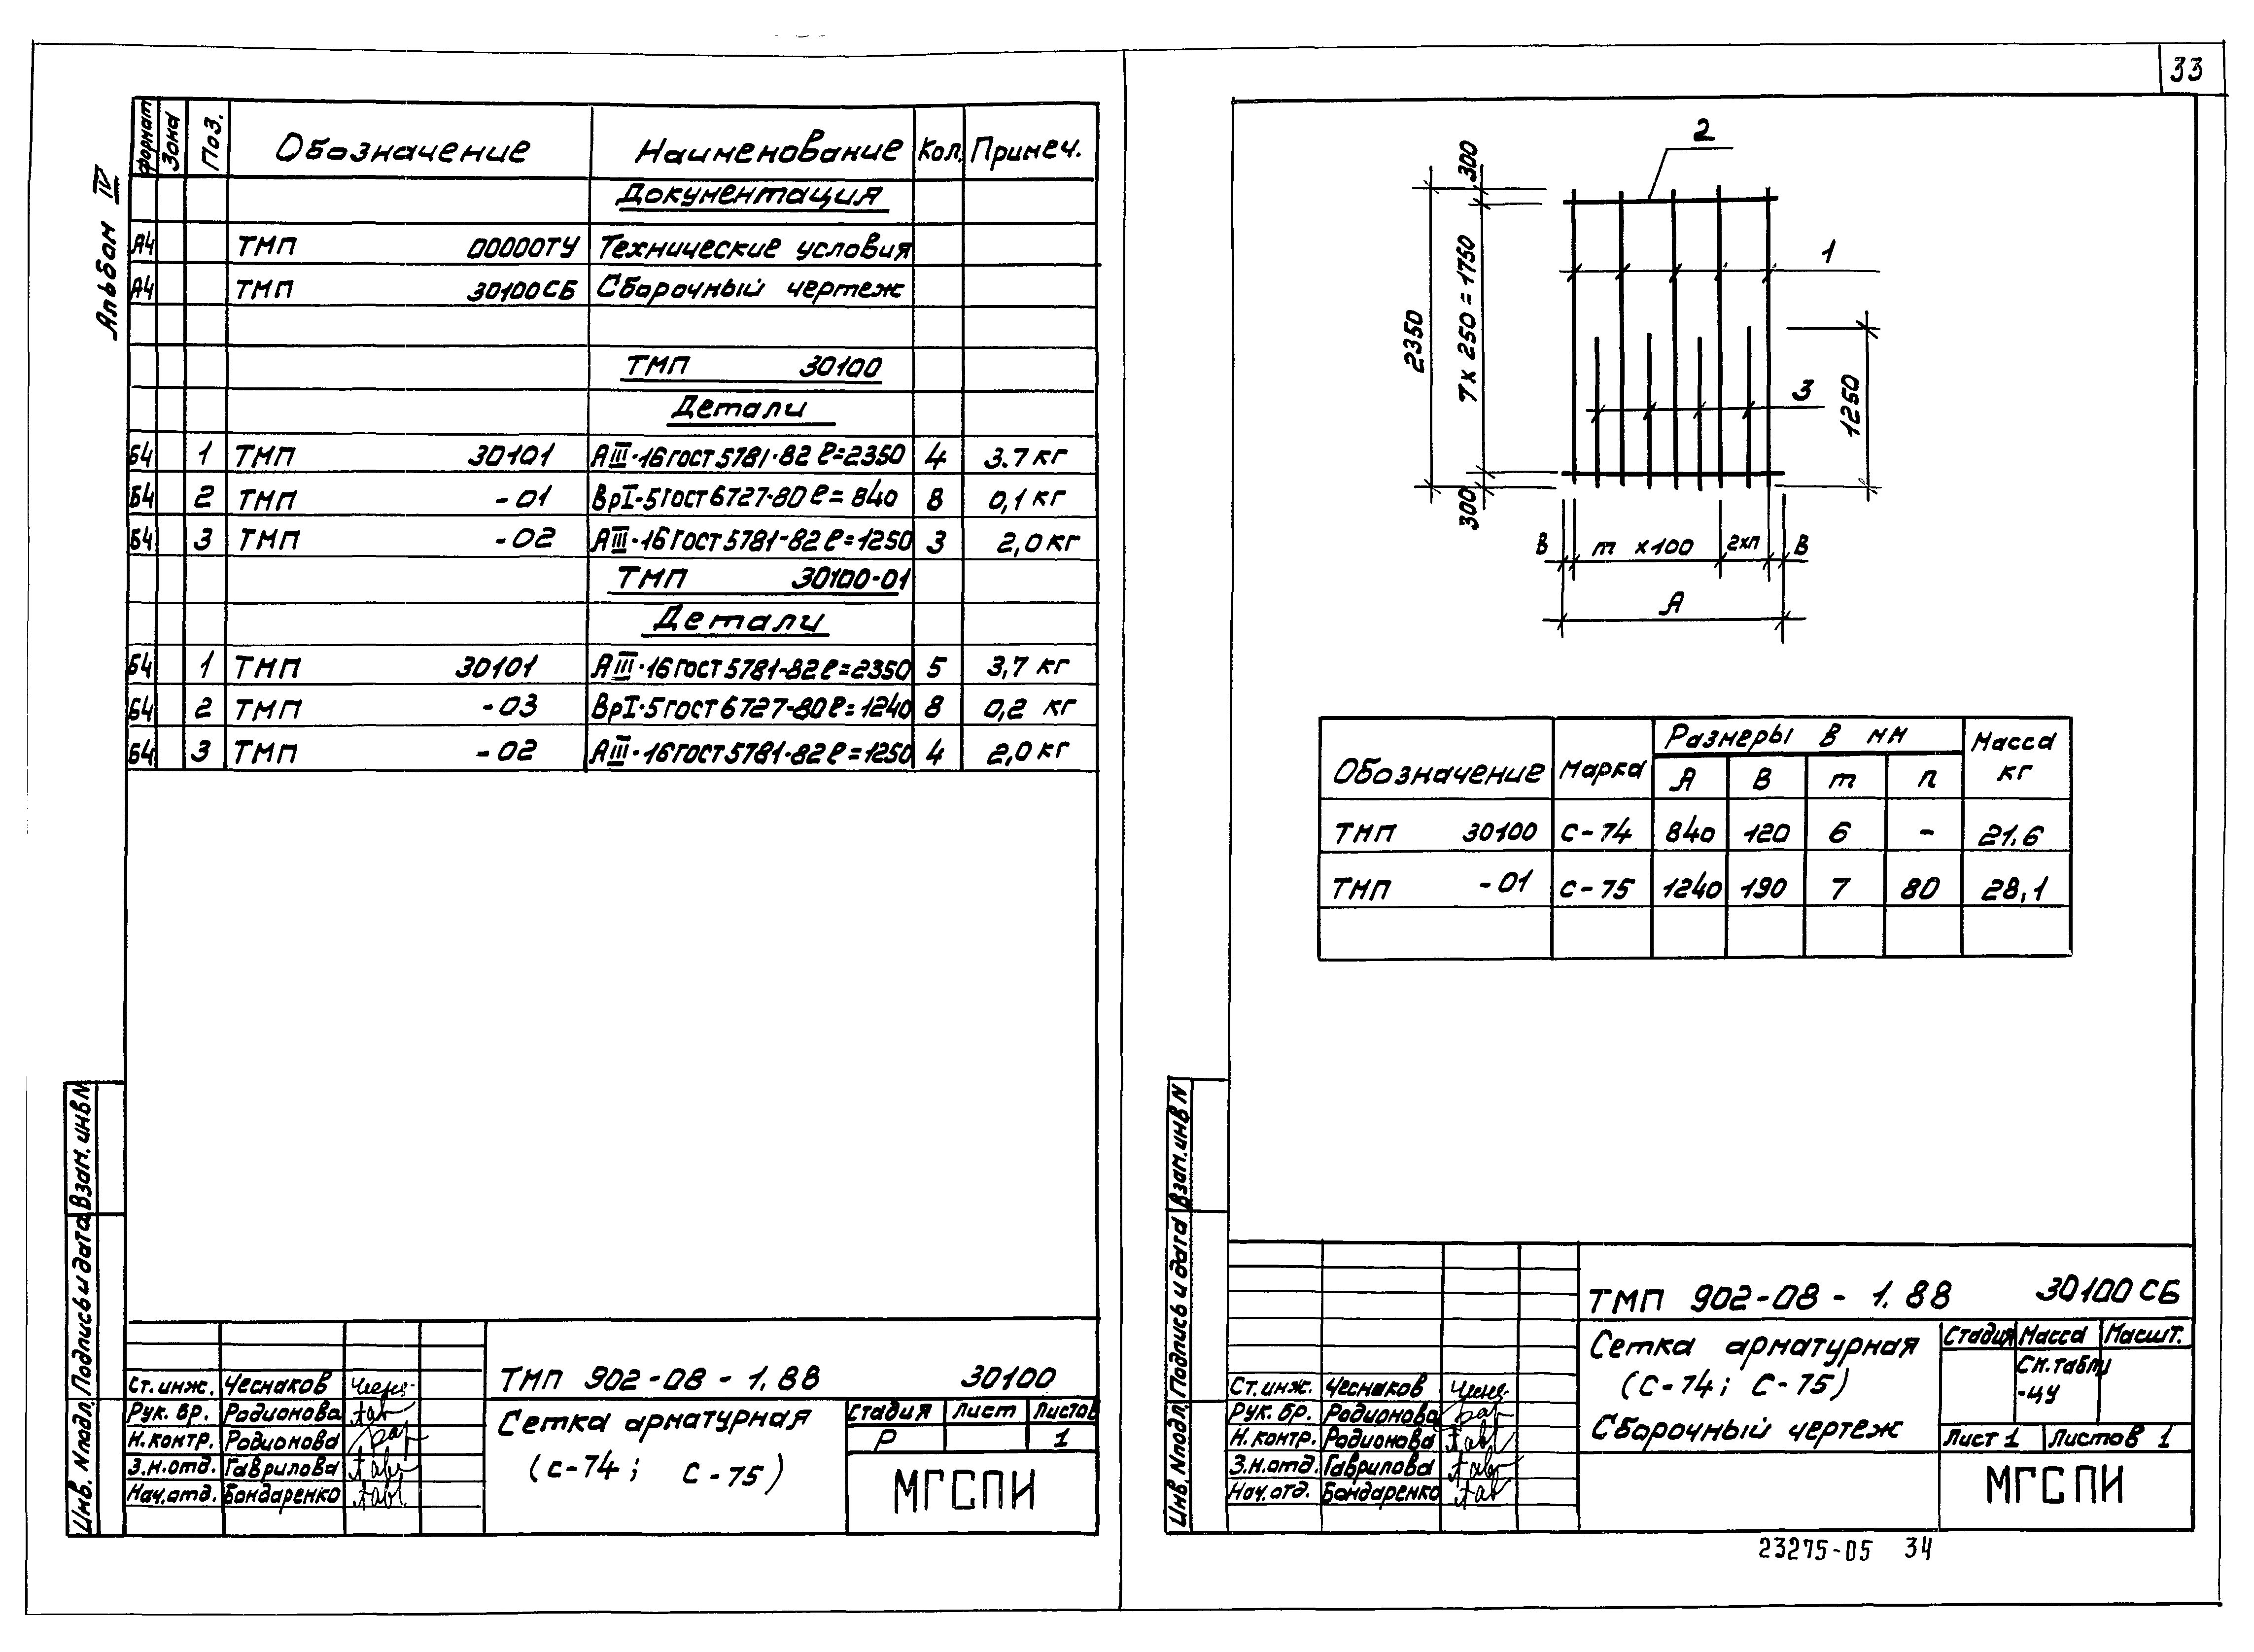 33
Альбом IV
Формат Зона Поз. Обозначение Наименование Кол. Примеч.
Документация
А4 ТМП 00000ТУ Технические условия
А4 ТМП 30100СБ Сборочный чертеж
ТМП 30100
Детали
Б4 1 ТМП 30101 АIII·16 ГОСТ 5781·82 ℓ=2350 4 3.7 кг
Б4 2 ТМП -01 ВрI-5 ГОСТ 6727-80 ℓ=840 8 0,1 кг
Б4 3 ТМП -02 АIII·16 ГОСТ 5781-82 ℓ=1250 3 2,0 кг
ТМП 30100-01
Детали
Б4 1 ТМП 30101 АIII·16 ГОСТ 5781-82 ℓ=2350 5 3,7 кг
Б4 2 ТМП -03 ВрI·5 ГОСТ 6727-80 ℓ=1240 8 0,2 кг
Б4 3 ТМП -02 АIII·16 ГОСТ 5781·82 ℓ=1250 4 2,0 кг
Взам. инв N
Подпись и дата
Инв. N подл.
ТМП 902-08-1.88 30100
Ст. инж. Чеснаков
Рук. бр. Родионова
Н. контр. Родионова
З.н.отд. Гаврилова
Нач. отд. Бондаренко
Сетка арматурная
(С-74; С-75)
Стадия Лист Листов
Р 1
МГСПИ
2
300
1
7х250=1750
2350
3
1250
300
В m х100 2хп В
А
Обозначение Марка Размеры в мм Масса кг
А В m п
ТМП 30100 С-74 840 120 6 - 21.6
ТМП -01 С-75 1240 190 7 80 28,1
Взам. инв N
Подпись и дата
Инв. N подл.
ТМП 902-08-1.88 30100 СБ
Ст. инж. Чеснаков
Рук. бр. Родионова
Н. контр. Родионова
З.н.отд. Гаврилова
Нач. отд. Бондаренко
Сетка арматурная
(С-74; С-75)
Сборочный чертеж
Стадия Масса Масшт.
См. табли
-цу
Лист 1 Листов 1
МГСПИ
23275-05 34